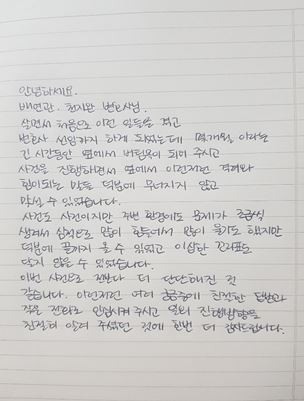 안녕하세요.
배연관. 천지완 변호사님.
살면서 처음으로 이런 일들을 겪고
변호사 선임까지 하게 되었는데 몇개월 이라는
긴 시간동안 옆에서 버팀목이 되어 주시고
사건을 진행하면서 옆에서 이런저런 격려와
힘이되는 말들 덕분에 무너지지 않고
맞설 수 있었습니다.
사건도 사건이지만 주변 환경이도 문제가 조금씩
생겨서 심적으로 많이 힘들어서 많이 울기도 했지만
덕분에 끝까지 올 수 있었고 이상한 꼬리표도
달지 않을 수 있었습니다.
이번 사건으로 전보다 더 단단해진 것
같습니다. 이런저런 여러 궁금증에 친절한 답변과
잦은 전화로 안심시켜 주시고 일의 진행방향을
친절히 알려 주셨던 것에 한번 더 감사드립니다.